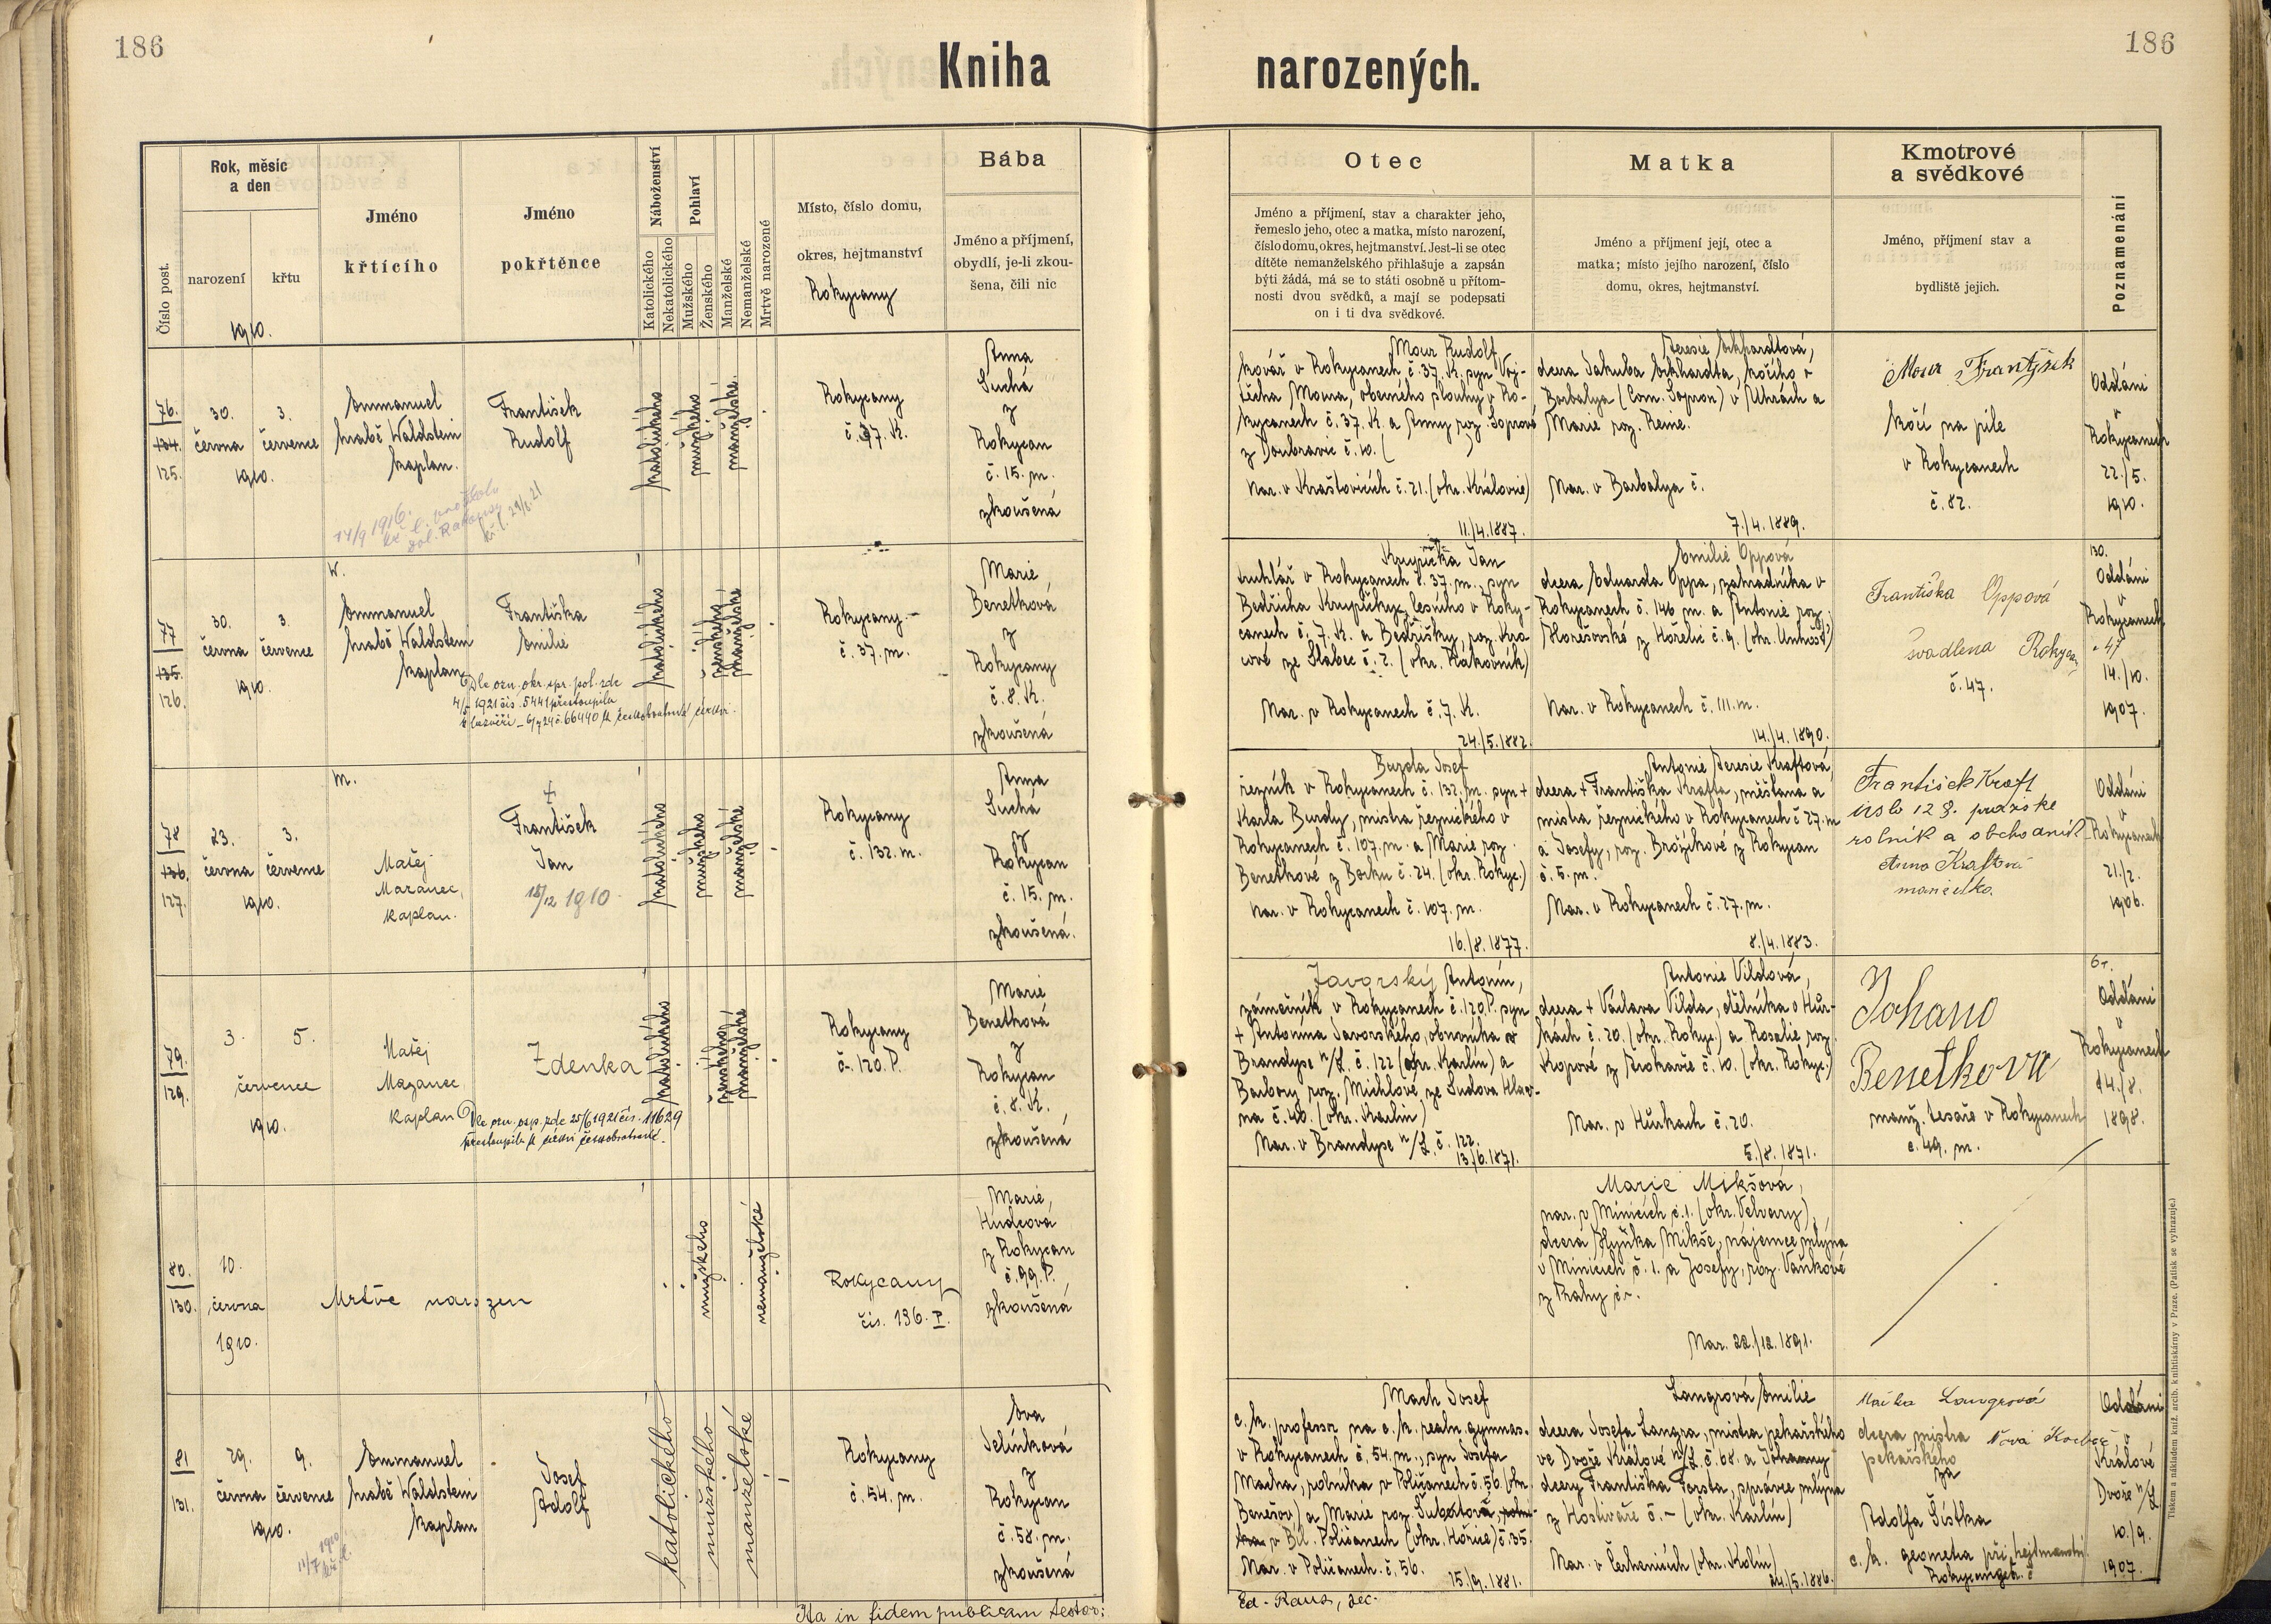 186
186
Kniha
narozených.
Číslo post.
Rok, měsíc
a den
narození
křtu
1910.
Jméno
křtícího
Jméno
pokřtěnce
Náboženství
Katolického
Nekatolického
Pohlaví
Mužského
Ženského
Manželské
Nemanželské
Mrtvě narozené
Místo, číslo domu,
okres, hejtmanství
Rokycany
Bába
Jméno a příjmení,
obydlí, je-li zkou-
šena, čili nic
Otec
Jméno a příjmení, stav a charakter jeho,
řemeslo jeho, otec a matka, místo narození,
číslo domu, okres, hejtmanství. Jest-li se otec
dítěte nemanželského přihlašuje a zapsán
býti žádá, má se to státi osobně u přítom-
nosti dvou svědků, a mají se podepsati
on i ti dva svědkové.
Matka
Jméno a příjmení její, otec a
matka; místo jejího narození, číslo
domu, okres, hejtmanství.
Kmotrové
a svědkové
Jméno, příjmení stav a
bydliště jejich.
Poznamenání
76.
134.
125.
30.
června
3.
července
1910.
Emmanuel
hrabě Waldstein
kaplan.
František
Rudolf
katolického
mužského
manželské
Rokycany
č. 37. K.
Anna
Suchá
z
Rokycan
č. 15. m.
zkoušená
14/9 1916.
Mour Rudolf
kovář v Rokycanech č. 37. K. syn Voj-
těcha Moura, obecného sluhy v Ro-
kycanech č. 37. K. a Anny roz. Soprové
z Doubravic č. 10.
Nar. v Kraštovicích č. 21. (okr. Královice)
11./4. 1887.
Teresie Eckhardtová,
dcera Jakuba Eckhardta, kočího v
Barbalya (Com. Sopron) v Uhrách a
Marie roz. Reine.
Nar. v Barbalya č.
7./4. 1889.
Mour František
kočí na pile
v Rokycanech
č. 82.
Oddáni
v
Rokycanech
22./5.
1910.
77
135.
126.
30.
června
3.
července
1910.
Emmanuel
hrabě Waldstein
kaplan
Františka
Emilie
katolického
ženského
manželské
Rokycany
č. 37. m.
Marie
Benetková
z
Rokycany
č. 8. K.
zkoušená
Dle ozn. okr. spr. pol. zde
4/5 1921 čís. 5441 přestoupila
k bezvěří
Krupička Jan
truhlář v Rokycanech č. 37. m., syn
Bedřicha Krupičky, lesního v Roky-
canech č. 7. K. a Bedřišky, roz. Kra
cové ze Slabec č. 2. (okr. Rakovník)
Nar. v Rokycanech č. 7. K.
24./5. 1882.
Emilie Oppová
dcera Eduarda Oppa, zahradníka v
Rokycanech č. 146 m. a Antonie roz.
Hořešovské z Hořelic č. 9. (okr. Unhošť)
Nar. v Rokycanech č. 111. m.
14./4. 1890.
Františka Oppová
švadlena
č. 47.
130.
Oddáni
v
Rokycanech
14./10.
1907.
78
136.
127.
23.
června
3.
července
1910.
m.
Matěj
Mazanec,
kaplan.
František
Jan
18/12 1910.
katolického
mužského
manželské
Rokycany
č. 132. m.
Anna
Suchá
z
Rokycan
č. 15. m.
zkoušená.
Burda Josef
řezník v Rokycanech č. 132. m. syn +
Karla Burdy, mistra řeznického v
Rokycanech č. 107. m. a Marie roz.
Benetkové z Borku č. 24. (okr. Rokyc.)
Nar. v Rokycanech č. 107. m.
16./8. 1877.
Antonie Teresie Kraftová,
dcera + Františka Krafta, měšťana a
mistra řeznického v Rokycanech č 27. m
a Josefy, roz. Brožíkové z Rokycan
č. 5. m.
Nar. v Rokycanech č. 27. m.
8./4. 1883.
František Kraft
rolník a obchodník
Anna Kraftová
manželka
Oddáni
v
Rokycanech
21./2.
1906.
79.
129.
3.
5.
července
1910.
Matěj
Mazanec
kaplan
Zdenka
katolického
ženského
manželské
Rokycany
č. 120. P.
Marie
Benetková
z
Rokycan
č. 8. K.
zkoušená
Dle ozn. osp. zde 25/6 1921 čís. 11629
přestoupila k církvi českobratrské.
Javorský Antonín,
zámečník v Rokycanech č. 120. P. syn
+ Antonína Javorského, obuvníka v
Brandyse n/L. č. 122 (okr. Karlín) a
Barbory roz. Michlové, ze Sudova Hlav-
na č. 40. (okr. Karlín)
Nar. v Brandyse n/L. č. 122.
13./6. 1871.
Antonie Vildová,
dcera + Václava Vilda, dělníka v Hůr-
kách č. 20. (okr. Rokyc.) a Rosalie roz.
Kopové z Strokavic č. 10. (okr. Rokyc.)
Nar. v Hůrkach č. 20.
5./8. 1871.
Johana
Benetkova
manž. tesaře v Rokycanech
č. 49. m.
Oddáni
v
Rokycanech
14./8.
1898.
80.
130.
10.
června
1910.
Mrtvě narozen
mužského
nemanželské
Rokycany
čís. 136. P.
Marie,
Hudcová
z Rokycan
č. 99. P.
zkoušená
Marie Mikšová,
nar. v Minicích č. 1. (okr. Velvary),
dcera Hynka Mikše, nájemce mlýna
v Minicích č. 1. a Josefy, roz. Vaňkové
z Prahy č.
Nar. 22./12. 1891.
81
131.
29.
června
9.
července
1910.
Emmanuel
hrabě Waldstein
kaplan
Josef
Adolf
katolického
mužského
manželské
Rokycany
č. 54. m.
Eva
Jelínková
z
Rokycan
č. 58. m.
zkoušená
Mach Josef
c. k. professor na c. k. realn. gymnas.
v Rokycanech č. 54. m., syn Josefa
Macha, rolníka v Poličanech č. 56. (okr.
Benešov) a Marie roz. Šubrtová
v Bíl. Poličanech (okr. Hořice) č. 35.
Nar. v Poličanech č. 56.
15./9. 1881.
Langrová Emilie
dcera Josefa Langra, mistra pekařského
ve Dvoře Králové n/L č. 68. a Johanny
dcery Františka Forsta, správce mlýna
z Hostivaře č. – (okr. Karlín)
Nar. v Cerhenicích (okr. Kolín)
24./5. 1886.
Mařka Langrová
dcera mistra
pekařského
za
Adolfa Šístka
c. k. geometra při hejtmanství
Oddáni
v
Králové
Dvoře n/L
10./9.
1907.
Ita in fidem publicam testor:
Ed. Raus, dec.
Tiskem a nákladem kníž. arcib. knihtiskárny v Praze. (Patisk se vyhrazuje.)